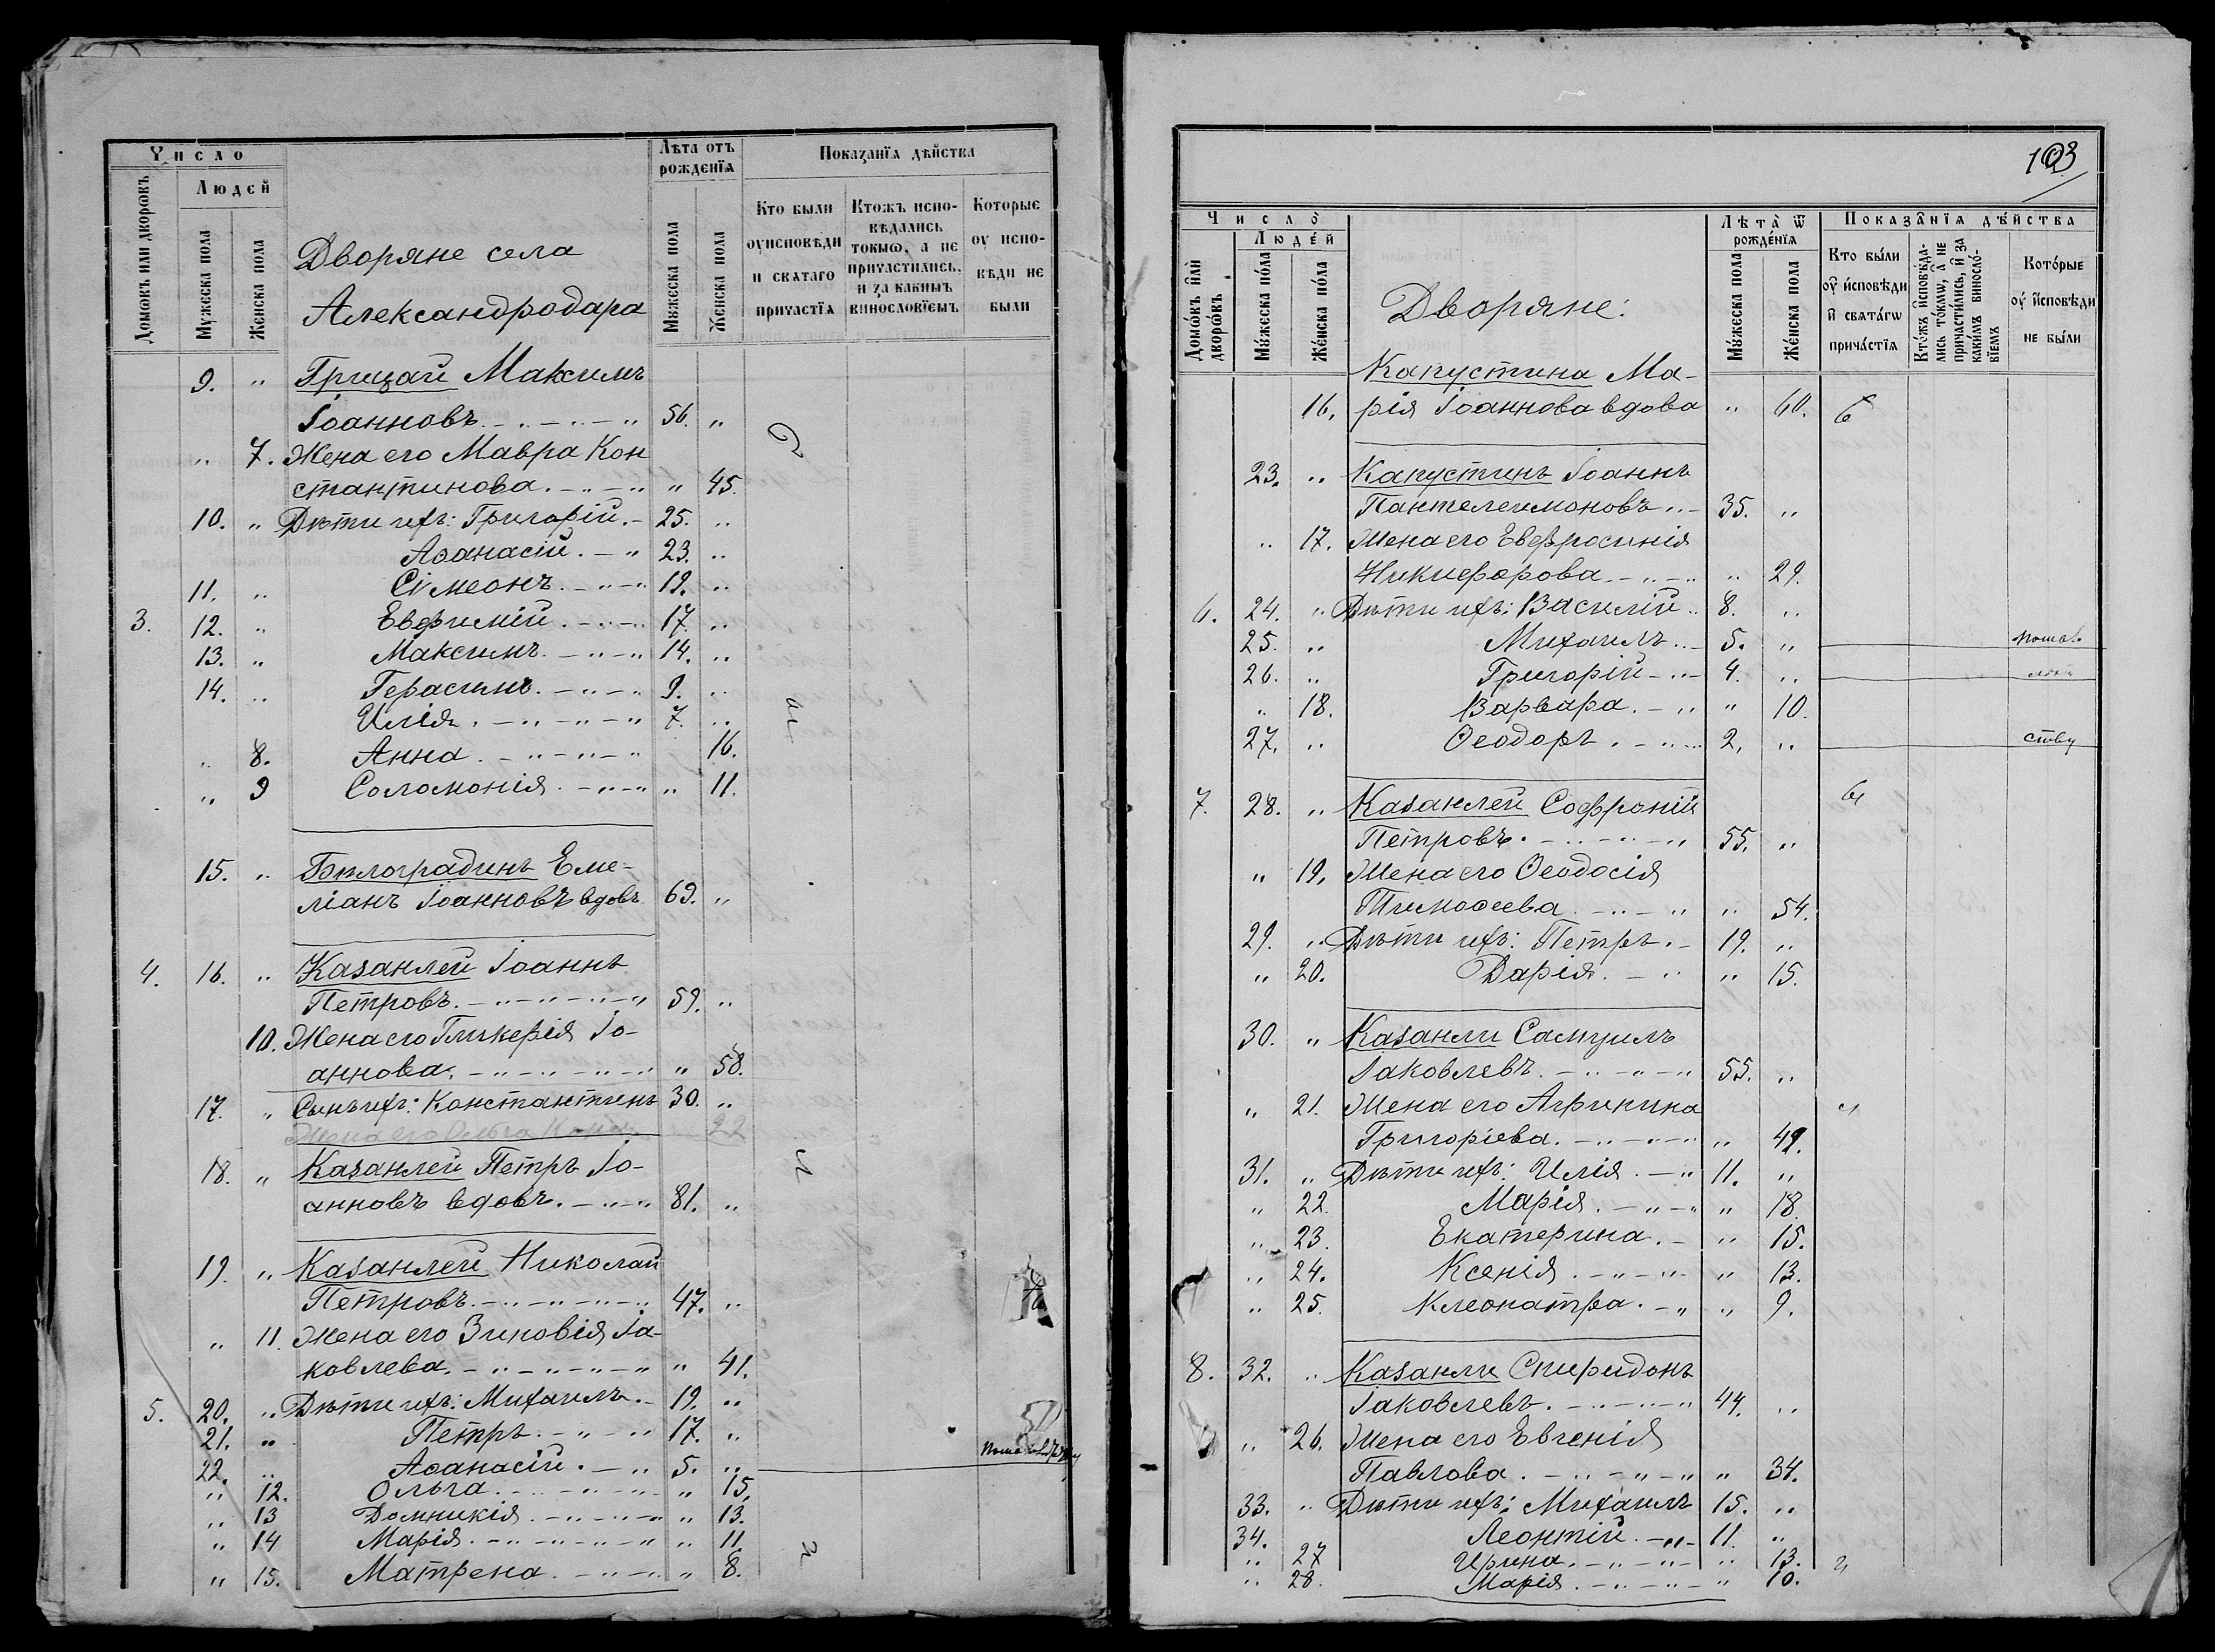 Число
Людей
Домовъ или дворовъ
Мужеска пола
Женска пола
Дворяне села
Александродара
Лѣта отъ
рожденїѧ
Мужеска пола
Женска пола
Показанїѧ дѣйства
Кто были оуисповѣди и свѧтаго причастїѧ
Ктожъ исповѣдались токмѡ, а не причастились, и за какимъ винословїемъ
Которые оу исповѣди не были
9. „ Грицай Максимъ
Іоанновъ 56. „
„ 7. Жена его Мавра Кон
стантинова „ 45.
10. „ Дѣти ихъ: Григорій 25. „
Аѳанасій 23. „
11. „ Сімеонъ 19. „
3. 12. „ Евфимій 17. „
13. „ Максимъ 14. „
14. „ Герасимъ 9. „
Илія 7. „
„ 8. Анна 16.
„ 9 Соломонія „ 11.
15. „ Бѣлоградинъ Еме-
ліанъ Іоанновъ вдовъ 69. „
4. 16. „ Казанлей Іоаннъ
Петровъ 59. „
10. Жена его Гликерія Іо-
аннова „ 58.
17. „ Сынъ ихъ: Константинъ 30. „
Жена его Ольга 22
18. „ Казанлей Петръ Іо-
анновъ вдовъ 81. „
19. „ Казанлей Николай
Петровъ 47. „
„ 11. Жена его Зиновія Іа-
ковлева „ 41.
5. 20. „ Дѣти ихъ: Михаилъ 19. „
21. „ Петръ 17. „
22. „ Аѳанасій 5. „
„ 12. Ольга „ 15.
„ 13 Домникія „ 13.
„ 14 Марія „ 11
„ 15. Матрена „ 8.
103
Число
Людей
Домѡвъ или дворѡвъ
Мужеска пола
Женска пола
Дворяне:
Лѣта ѿ
рожденїѧ
Мужеска пола
Женска пола
Показанїѧ дѣйства
Кто были оу исповѣди и свѧтагѡ причастїѧ
Ктожъ исповѣдались токмѡ, а не причастились, и за какимъ винословїемъ
Которые оу исповѣди не были
Капустина Ма-
16. рія Іоаннова вдова „ 60.
23. „ Капустинъ Іоаннъ
Пантелеимоновъ 35. „
„ 17. Жена его Евфросинія
Никифорова „ 29.
6. 24. „ Дѣти ихъ: Василій 8. „
25. „ Михаилъ 5. „
26. „ Григорій 4. „
„ 18. Варвара „ 10.
27. „ Ѳеодоръ 2. „ ству
7. 28. „ Казанлей Софроній
Петровъ 55. „
„ 19. Жена его Ѳеодосія
Тимоѳеева „ 54.
29. „ Дѣти ихъ: Петръ 19. „
„ 20. Дарія „ 15.
30. „ Казанли Самуилъ
Іаковлевъ 55. „
„ 21. Жена его Агрипина
Григоріева „ 49.
31. „ Дѣти ихъ: Илія 11. „
„ 22. Марія „ 18.
„ 23. Екатерина „ 15.
„ 24. Ксенія „ 13.
„ 25. Клеопатра „ 9.
8. 32. „ Казанли Спиридонъ
Іаковлевъ 44. „
„ 26. Жена его Евгенія
Павлова „ 34.
33. „ Дѣти ихъ: Михаилъ 15. „
34. Леонтій 11. „
„ 27 Ирина „ 13.
„ 28. Марія „ 10.